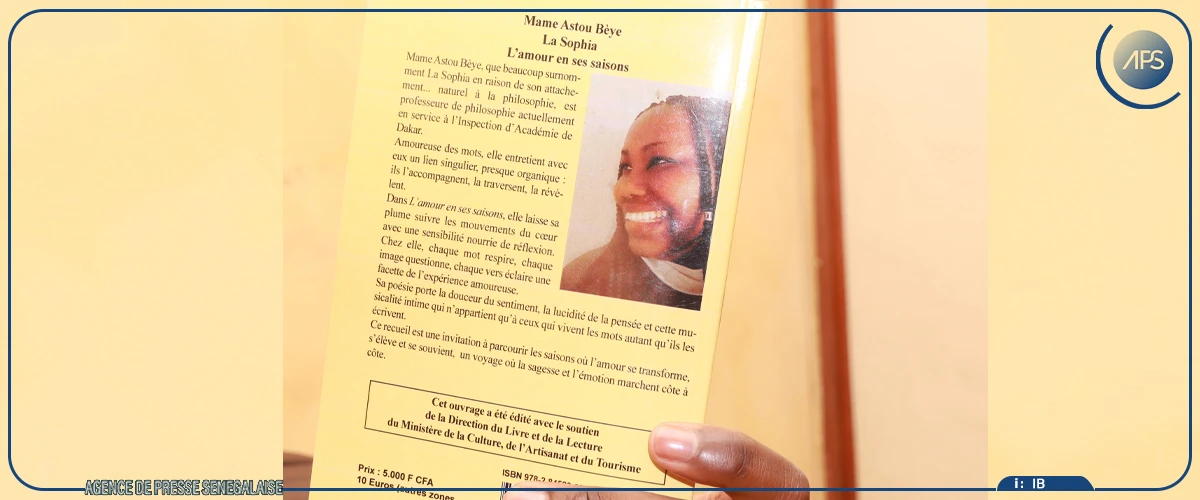 APS
Mame Astou Bèye
La Sophia
L'amour en ses saisons
Mame Astou Bèye, que beaucoup surnom-
ment La Sophia en raison de son attache-
ment... naturel à la philosophie, est
professeure de philosophie actuellement
en service à l'Inspection d'Académie de
Dakar.
Amoureuse des mots, elle entretient avec
eux un lien singulier, presque organique :
ils l'accompagnent, la traversent, la révè-
lent.
Dans L'amour en ses saisons, elle laisse sa
plume suivre les mouvements du cœur
avec une sensibilité nourrie de réflexion.
Chez elle, chaque mot respire, chaque
image questionne, chaque vers éclaire une
facette de l'expérience amoureuse.
Sa poésie porte la douceur du sentiment, la lucidité de la pensée et cette mu-
sicalité intime qui n'appartient qu'à ceux qui vivent les mots autant qu'ils les
écrivent.
Ce recueil est une invitation à parcourir les saisons où l'amour se transforme,
s'élève et se souvient, un voyage où la sagesse et l'émotion marchent côte à
côte.
Cet ouvrage a été édité avec le soutien
de la Direction du Livre et de la Lecture
du Ministère de la Culture, de l'Artisanat et du Tourisme
Prix : 5.000 F CFA
10 Euros (autres zones
ISBN 978-2-
AGENCE DE PRESSE SENEGALAISE
i: IB